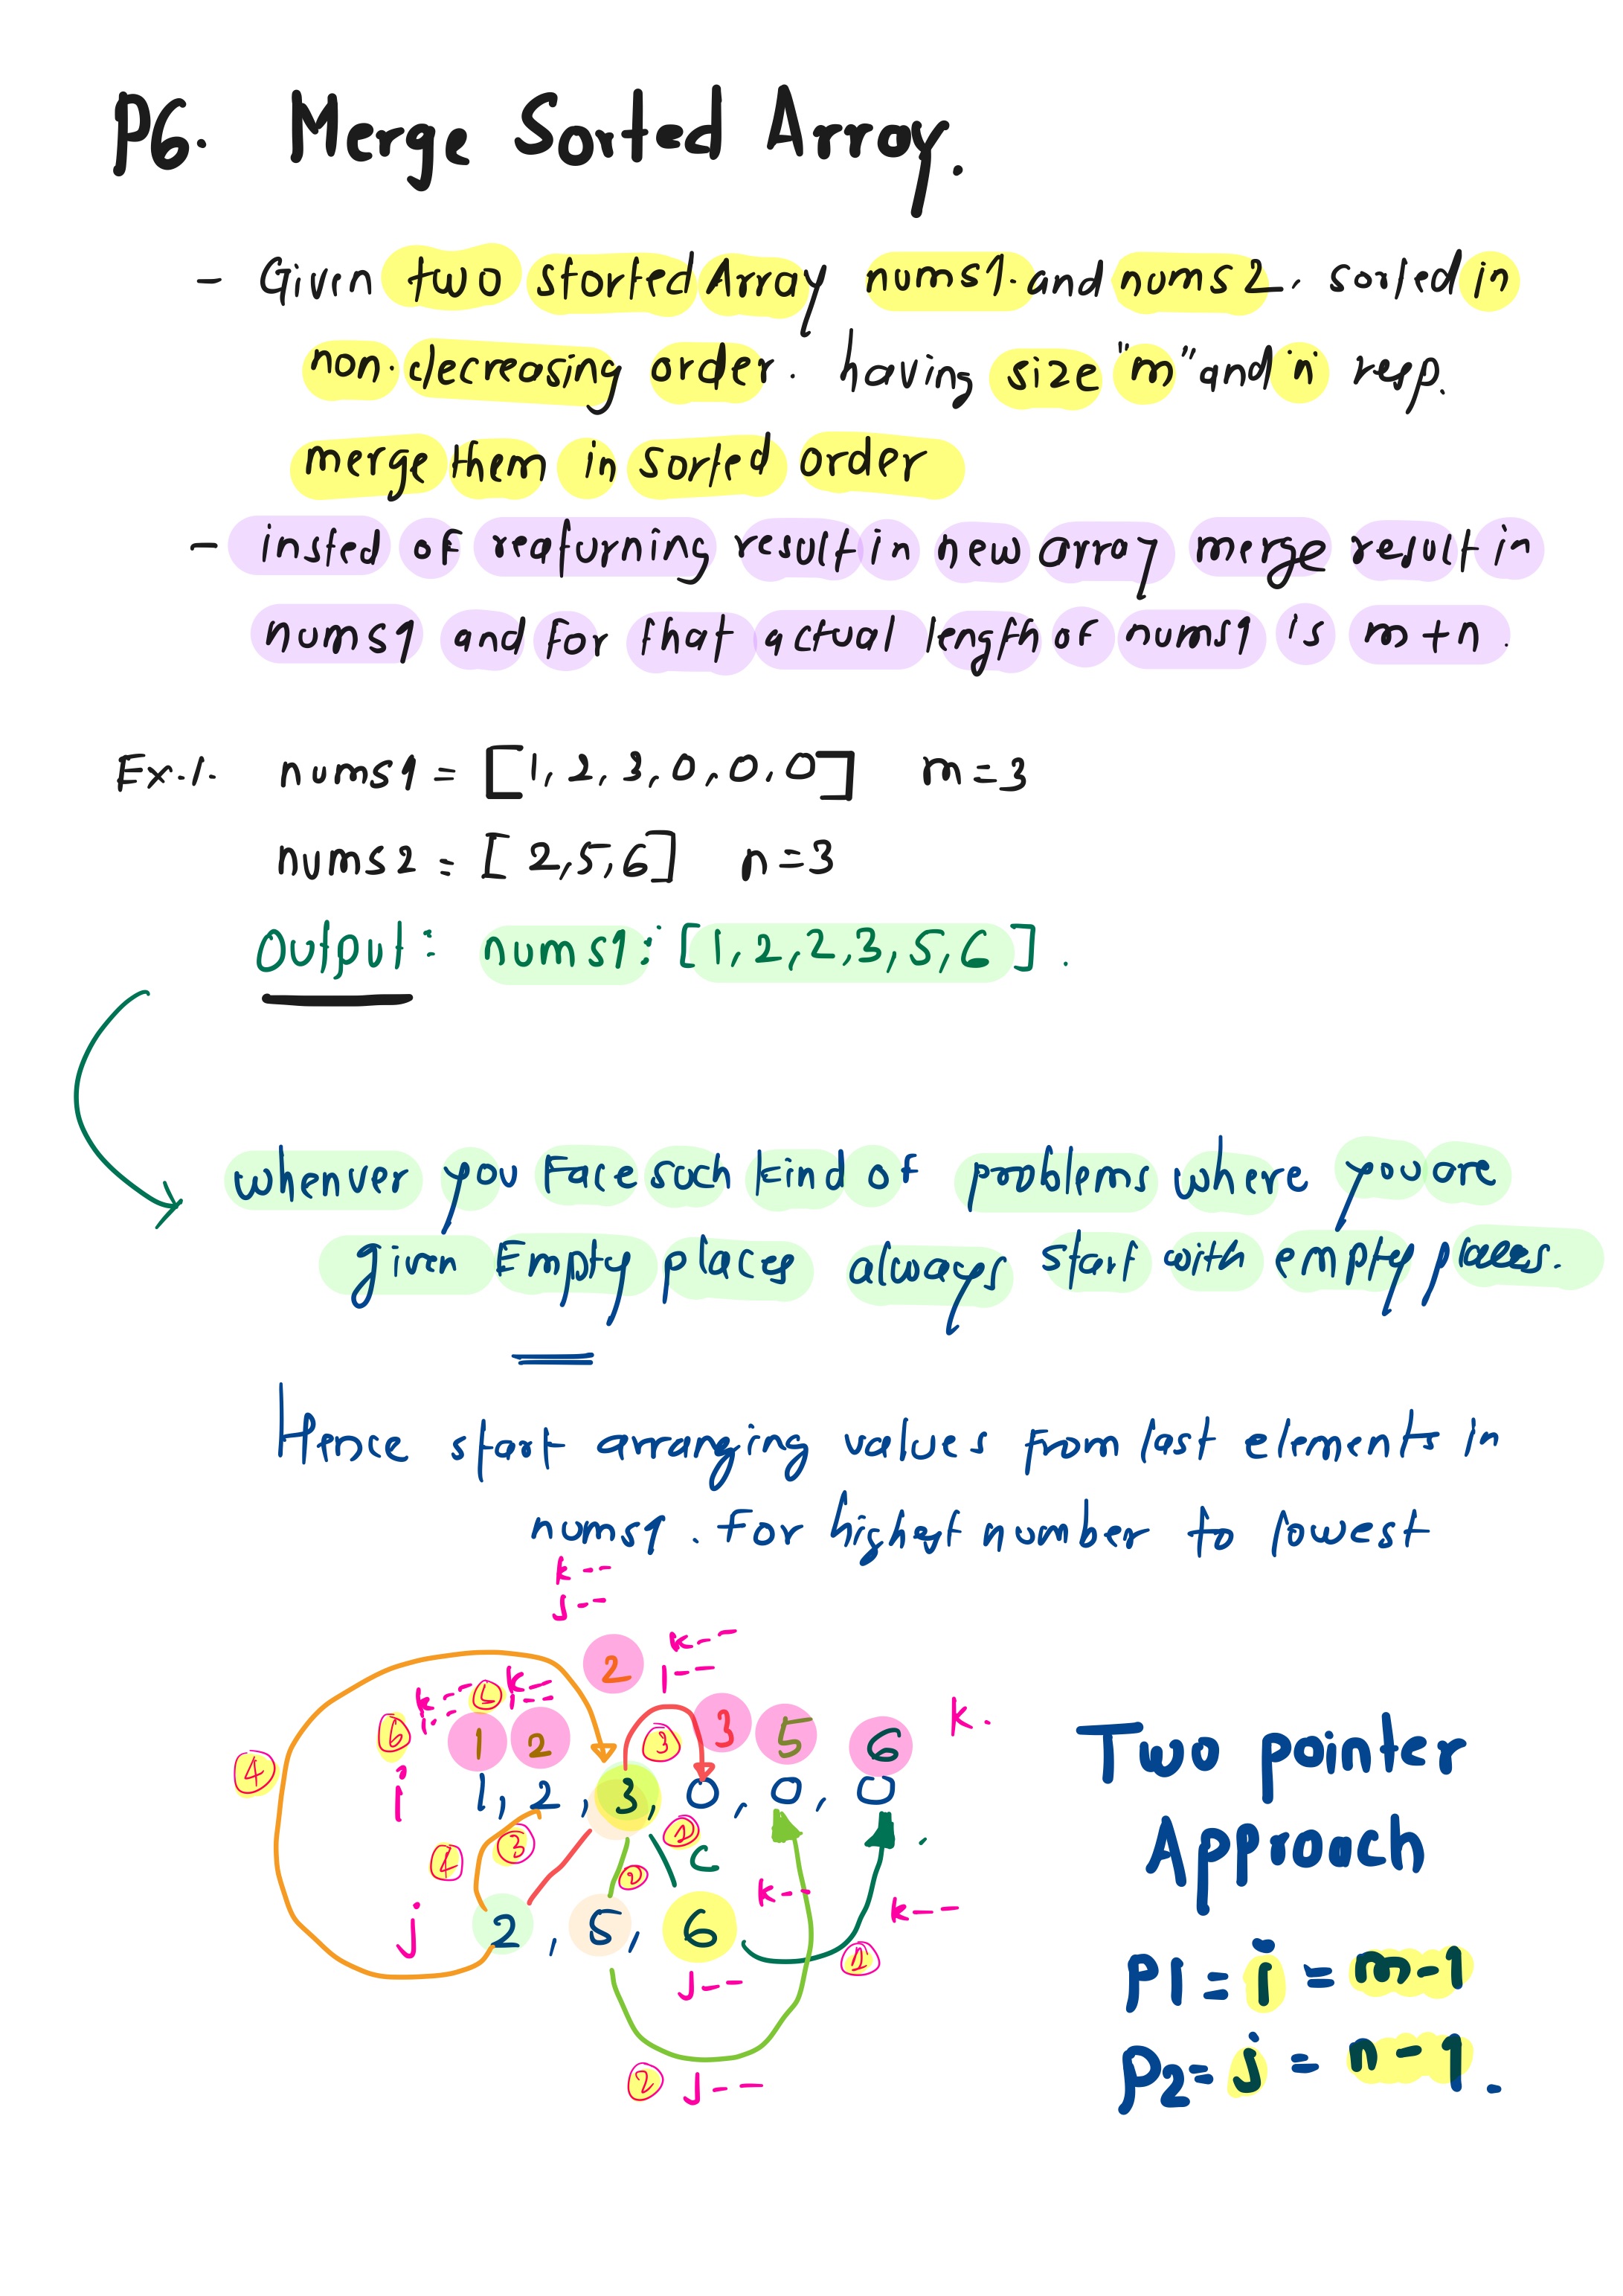 P6. Merge Sorted Array.
- Given two storted Array nums1. and nums2. sorted in
non-decreasing order. having size "m" and "n" resp.
merge them in sorted order
- insted of reafurning result in new array merge result in
nums1 and for that actual length of nums1 is m+n.
Ex.1. nums1 = [1, 2, 3, 0, 0, 0] m=3
nums2 = [2,5,6] n=3
Output: nums1: [1,2,2,3,5,6].
whenver you Face such kind of problems where you are
given Empty places always start with empty places.
Hence start arranging values from last elements in
nums1. for highest number to lowest
k--
j--
2 k--
i--
k-- 5 k--
i-- i--
6 1 2 3 3 5 6 k.
4
i 1, 2, 3, 0, 0, 0
4 3 2 1 c
k-- k--
j 2, 5, 6
1
j--
2 j--
Two pointer
Approach
P1 = i = m-1
P2 = j = n-1.